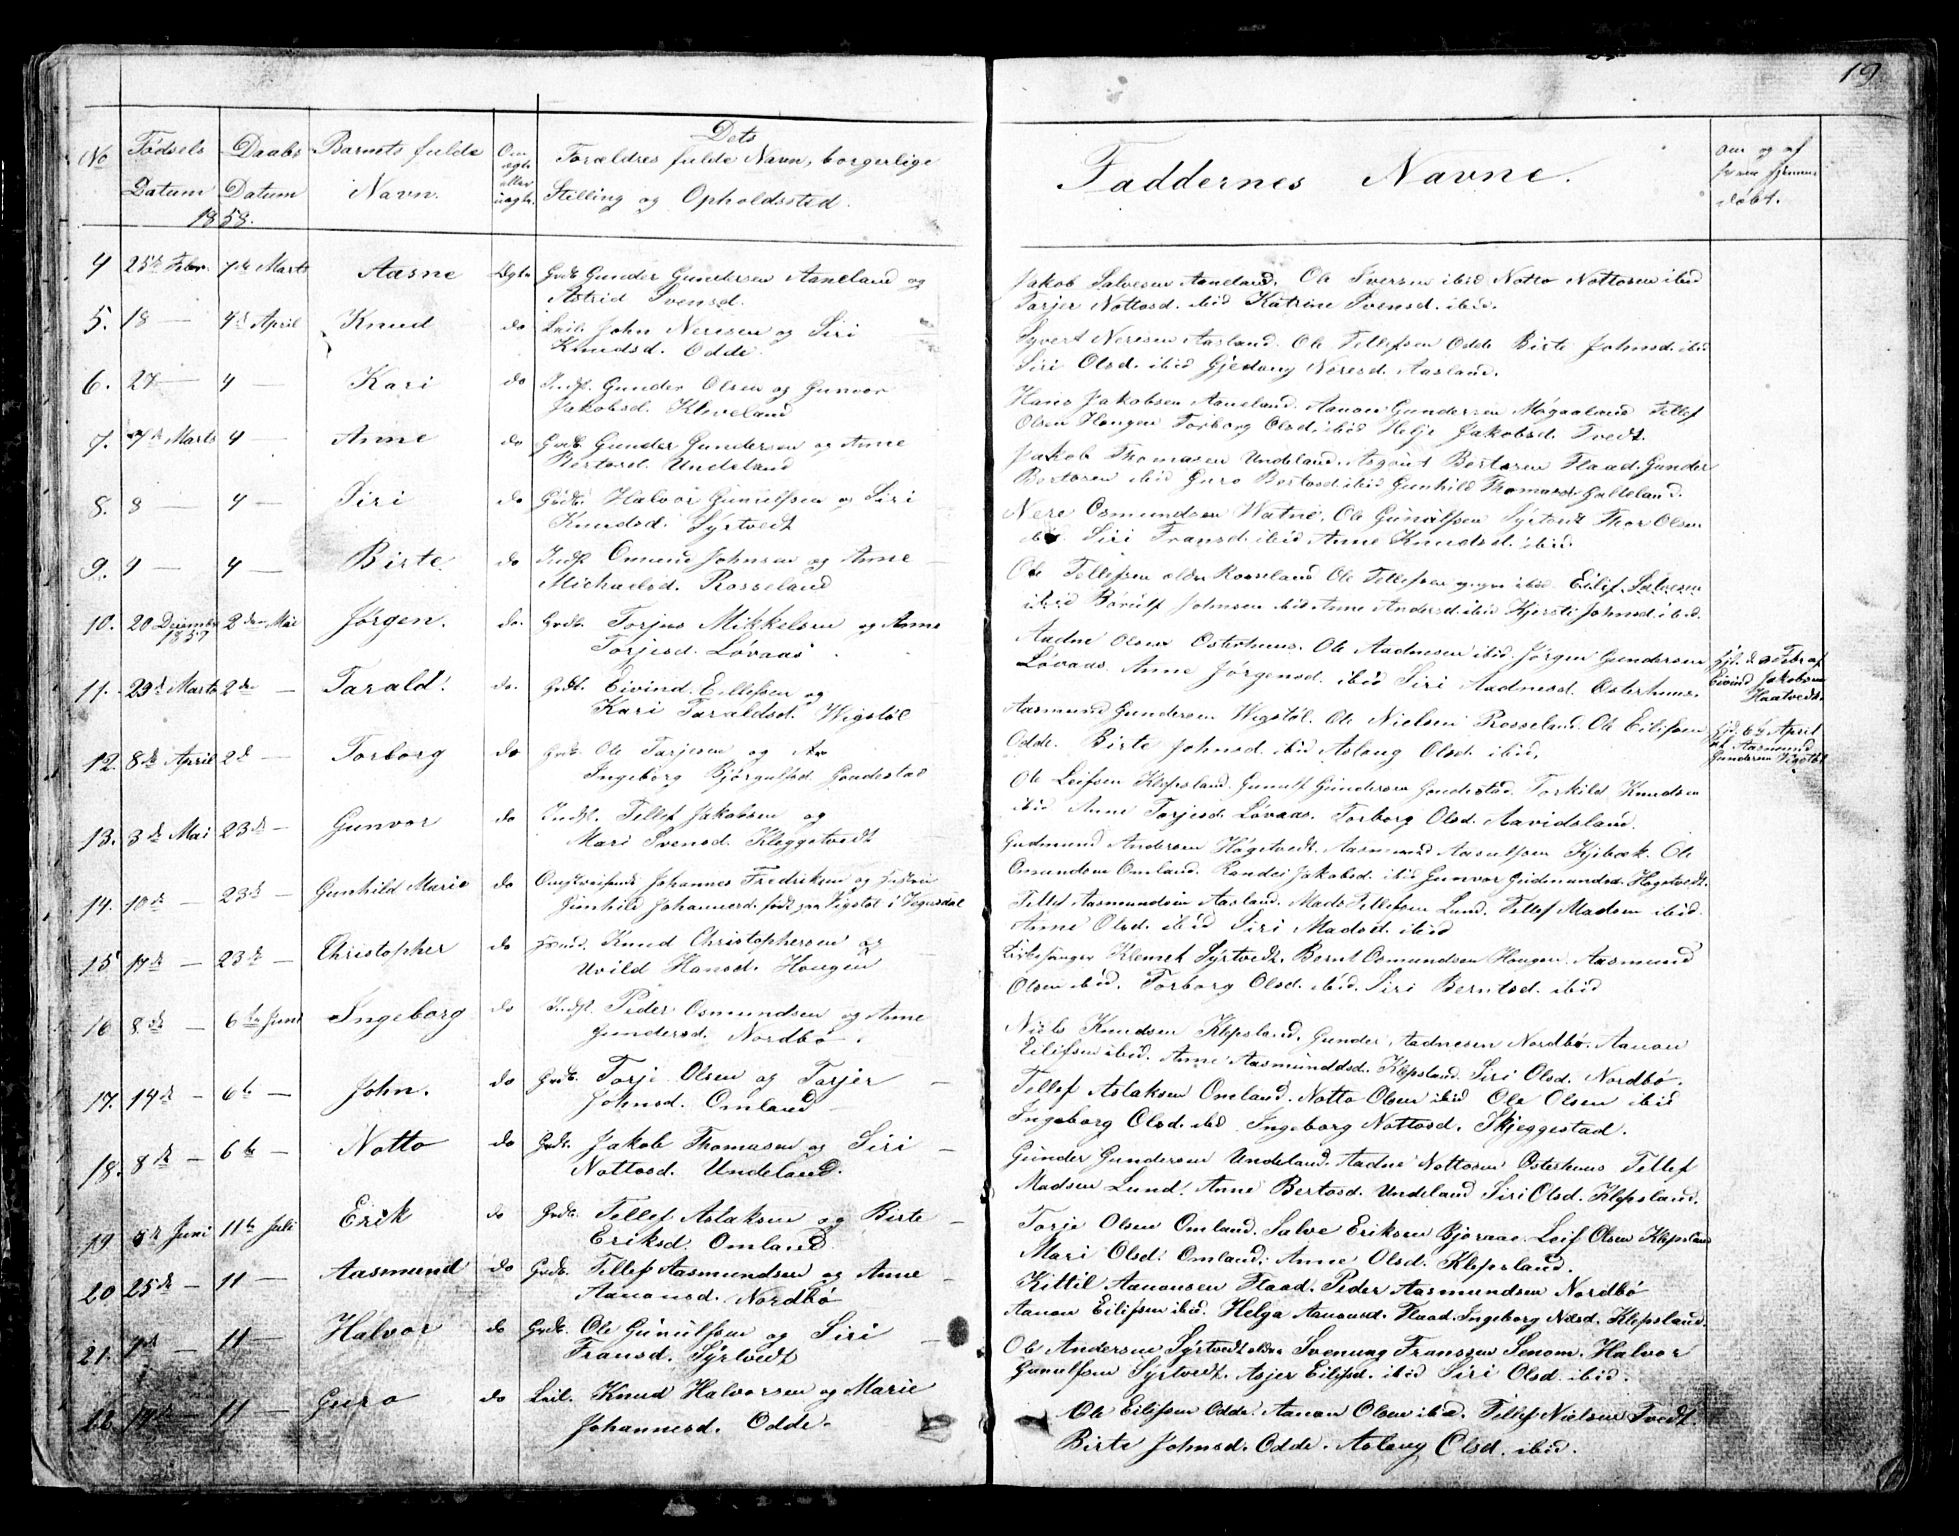 19
No Fødsels Datum Daabs Datum Barnets fulde Navn. Om ægte eller uægte. Dets Forældres fulde Navn, borgerlige Stilling og Opholdssted.
Faddernes Navne.
om og af hvem hjemme døbt.
1858.
4 25de Febr. 7de Marts Aasne Ægte Grdb. Gunder Gundersen Aaneland og
Astrid Svensd.
Jakob Salvesen Aaneland. Ole Iversen ibid Notto Nottosen ibid
Tarjer Nottosd. ibid Katrine Svensd. ibid.
5. 18 — 4de April Knud do Leil. John Neresen og Siri
Knudsd. Odde.
Syvert Neresen Aasland. Ole Tellefsen Odde Birte Johnsd. ibid
Siri Olsd. ibid Gjedang Neresd. Aasland.
6. 27 — 4 — Kari do Indst. Gunder Olsen og Gunvor
Jakobsd. Kleveland
Hans Jakobsen Aaneland. Aanon Gundersen Tellef
Olsen Hougen Torborg Olsd. ibid Helje Jakobsd. Tvedt.
7. 7de Marts 4 — Anne do Grdb. Gunder Gundersen og Anne
Bertosd. Undeland
Jakob Thomasen Undeland. Asgout Bertosen Flaad. Gunder
Bertosen ibid Guro Bertosd. ibid Gunhild Thomasd. Galteland.
8. 8 — 4 — Siri do Grdb. Halvor Gunulfsen og Siri
Knudsd. Syrtvedt
Nere Osmundsen Watne, Ole Gunulfsen Syrtvedt Thor Olsen
ibid Siri Fransd. ibid Anne Knudsd. ibid.
9. 9 — 4 — Birte do Indst. Omund Johnsen og Anne —
Michaelsd. Rosseland
Ole Tellefsen ældre Rosseland Ole Tellefsen yngre ibid Eilif Salvesen
ibid Børulf Johnsen ibid Anne Andersd. ibid Kjersti Johnsd. ibid.
10. 20 December 1857 2den Mai Jørgen. do. Grdb. Torjus Mikkelsen og Anne
Torjesd. Løvaas.
Aadne Olsen Osterhuus. Ole Aadnesen ibid. Jørgen Gundersen
Løvaas. Anne Jørgensd. ibid Siri Aadnesd. Osterhuus.
Hjd. d. Febr af
Eivind Jakobsen
Haatvedt.
11. 29de Marts 2den — Tarald. do. Grdb. Eivind Eilefsen og
Kari Taraldsd. Wigstøl
Aasmund Gundersen Wigstøl. Ole Nielsen Rosseland. Ole Eilifsen
Odde. Birte Johnsd. ibid Aslaug Olsd. ibid.
Hjd. 6te April
af Aasmund
Gundersen Vigstøl
12. 8de April 2d — Torborg do Grdb. Ole Tarjesen og
Ingeborg Bjørgulfsd. Gondestad
Ole Leifsen Klepsland. Gunulf Gundersen Gondestad. Torkild Knudsen
ibid Anne Torjesd. Løvaas. Torborg Olsd. Aavidsland.
13. 3de Mai 23de — Gunvor do Indst. Tellef Jakobsen og
Mari Svensd. Kleggetvedt
Gudmund Andersen Høgetvedt. Aasmund Aasulfsen Kjibæk. Ole
Omundsen Omland. Randei Jakobsd. ibid Gunvor Gudmundsd. Høgetvedt.
14. 10de — 23de — Gunhild Marie do Johannes Fredriksen og Hustru
Gunhild Johannesd. født paa Vigstøl i Vegusdal
Tellef Aasmundsen Aasland. Mads Tellefsen Lund. Tellef Madsen ibid.
Anne Olsd. ibid Siri Madsd. ibid
15 17de — 23de — Christopher do Knud Christophersen og
Uvild Hansd. Hougen
Kirkesanger Klemet Syrtvedt. Bernt Osmundsen Hougen. Aasmund
Olsen ibid. Torborg Olsd. ibid. Siri Berntsd. ibid
16 8de — 6te Juni Ingeborg do Indst. Peder Osmundsen og Anne
Gundersd. Nordbø.
Niels Knudsen Klepsland. Gunder Aadnesen Nordbø. Aanon
Eilifsen ibid. Anne Aasmundsd. Klepsland. Siri Olsd. Nordbø.
17. 14de — 6te — John. do Grdb. Torje Olsen og Tarjer —
Johnsd. Omland —
Tellef Aslaksen Omland. Notto Olsen ibid Ole Olsen ibid
Ingeborg Olsd. ibid Ingeborg Nottosd. Skjeggestad.
18. 8de — 6te — Notto do Grdb. Jakob Thomasen og Siri —
Nottosd. Undeland.
Gunder Gundersen Undeland. Aadne Nottosen Osterhuus Tellef
Madsen Lund. Anne Bertosd. Undeland Siri Olsd. Klepsland.
19 5de Juni 11te Juli Erik do Grdb. Tellef Aslaksen og Birte —
Eriksd. Omland
Torje Olsen Omland. Salve Eriksen Bjoraae. Leif Olsen Klepsland
Mari Olsd. Omland. Anne Olsd. Klepsland.
20 25de — 11 — Aasmund do Grdb. Tellef Aasmundsen og Anne —
Aanonsd. Nordbø
Kittil Aanonsen Flaad. Peder Aasmundsen Nordbø
Aanon Eilifsen ibid. Helga Aanonsd. Flaad. Ingeborg Nilsd. Klepsland.
21. 7de — 11 — Halvor do Grdb. Ole Gunulfsen og Siri —
Fransd. Syrtvedt
Ole Andersen Syrtvedt ældre Svenung Fransen Senom. Halvor
Gunulfsen Syrtvedt. Asjer Eilifsd. ibid Siri Olsd. ibid.
22. 14de — 11 — Guro do Leil. Knud Halvorsen og Marie
Johannesd. Odde.
Ole Eilifsen Odde. Aanon Olsen ibid. Tellef Nielsen Tvedt.
Birte Johnsd. Odde. Aslaug Olsd. ibid.